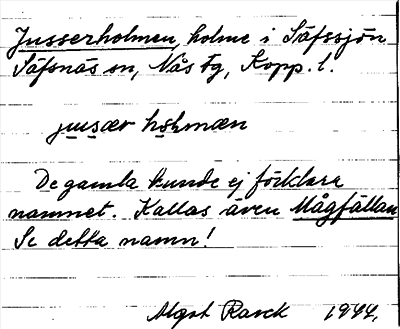 Jusserholmen, holme i Säfssjön
Säfsnäs sn, Nås tg, Kopp. l.
jusær hɷlmæn
De gamla kunde ej förklara
namnet. Kallas även Mågfällan
Se detta namn!
Algot Rasck 1944.